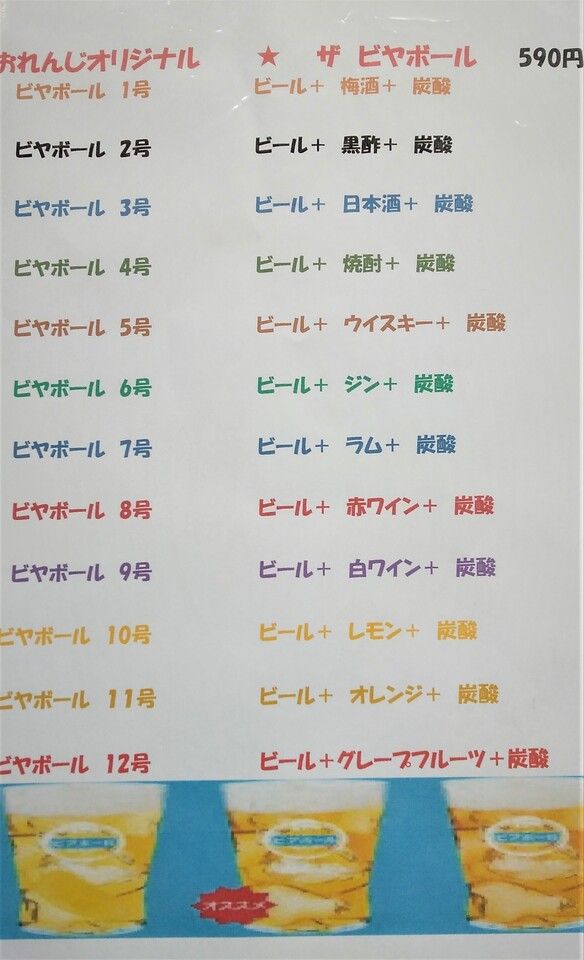 おれんじオリジナル ★ ザ ビヤボール 590円
ビヤボール 1号 ビール＋ 梅酒＋ 炭酸
ビヤボール 2号 ビール＋ 黒酢＋ 炭酸
ビヤボール 3号 ビール＋ 日本酒＋ 炭酸
ビヤボール 4号 ビール＋ 焼酎＋ 炭酸
ビヤボール 5号 ビール＋ ウイスキー＋ 炭酸
ビヤボール 6号 ビール＋ ジン＋ 炭酸
ビヤボール 7号 ビール＋ ラム＋ 炭酸
ビヤボール 8号 ビール＋ 赤ワイン＋ 炭酸
ビヤボール 9号 ビール＋ 白ワイン＋ 炭酸
ビヤボール 10号 ビール＋ レモン＋ 炭酸
ビヤボール 11号 ビール＋ オレンジ＋ 炭酸
ビヤボール 12号 ビール＋グレープフルーツ＋炭酸
オススメ